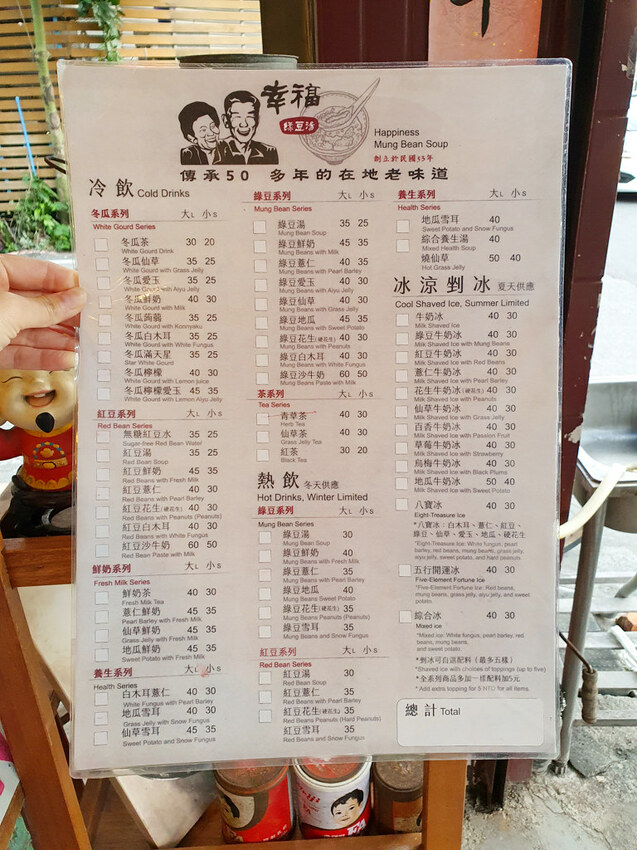 幸福
綠豆湯
Happiness
Mung Bean Soup
創立於民國53年
傳承50 多年的在地老味道
冷飲 Cold Drinks
冬瓜系列 大L 小S
White Gourd Series
冬瓜茶 30 20
White Gourd Drink
冬瓜仙草 35 25
White Gourd with Grass Jelly
冬瓜愛玉 35 25
White Gourd with Aiyu Jelly
冬瓜鮮奶 40 30
White Gourd with Milk
冬瓜蒟蒻 35 25
White Gourd with Konnyaku
冬瓜白木耳 35 25
White Gourd with White Fungus
冬瓜滿天星 35 25
Star White Gourd
冬瓜檸檬 40 30
White Gourd with Lemon juice
冬瓜檸檬愛玉 45 35
White Gourd with Lemon Aiyu Jelly
紅豆系列 大L 小S
Red Bean Series
無糖紅豆水 35 25
Sugar-free Red Bean Water
紅豆湯 35 25
Red Bean Soup
紅豆鮮奶 45 35
Red Beans with Fresh Milk
紅豆薏仁 40 30
Red Beans with Pearl Barley
紅豆花生(硬花生) 40 30
Red Beans with Peanuts (Peanuts)
紅豆白木耳 40 30
Red Beans with White Fungus
紅豆沙牛奶 60 50
Red Bean Paste with Milk
鮮奶系列 大L 小S
Fresh Milk Series
鮮奶茶 40 30
Fresh Milk Tea
薏仁鮮奶 45 35
Pearl Barley with Fresh Milk
仙草鮮奶 45 35
Grass Jelly with Fresh Milk
地瓜鮮奶 45 35
Sweet Potato with Fresh Milk
養生系列 大L 小S
Health Series
白木耳薏仁 40 30
White Fungus with Pearl Barley
地瓜雪耳 40 30
Grass Jelly with Snow Fungus
仙草雪耳 45 35
Sweet Potato and Snow Fungus
綠豆系列 大L 小S
Mung Bean Series
綠豆湯 35 25
Mung Bean Soup
綠豆鮮奶 45 35
Mung Beans with Milk
綠豆薏仁 40 30
Mung Beans with Pearl Barley
綠豆愛玉 40 30
Mung Beans with Aiyu Jelly
綠豆仙草 40 30
Mung Beans with Grass Jelly
綠豆地瓜 45 35
Mung Beans with Sweet Potato
綠豆花生(硬花生) 40 30
Mung Beans with Peanuts
綠豆白木耳 40 30
Mung Beans with White Fungus
綠豆沙牛奶 60 50
Mung Beans Paste with Milk
茶系列 大L 小S
Tea Series
青草茶 40 30
Herb Tea
仙草茶 40 30
Grass Jelly Tea
紅茶 30 20
Black Tea
熱飲 冬天供應
Hot Drinks, Winter Limited
綠豆系列 大L 小S
Mung Bean Series
綠豆湯 30
Mung Bean Soup
綠豆鮮奶 40
Mung Beans with Fresh Milk
綠豆薏仁 35
Mung Beans with Pearl Barley
綠豆地瓜 40
Mung Beans Sweet Potato
綠豆花生(硬花生) 35
Mung Beans Peanuts (Peanuts)
綠豆雪耳 35
Mung Beans and Snow Fungus
紅豆系列 大L 小S
Red Bean Series
紅豆湯 30
Red Bean Soup
紅豆薏仁 35
Red Beans with Pearl Barley
紅豆花生(硬花生) 35
Red Beans Peanuts (Hard Peanuts)
紅豆雪耳 35
Red Beans and Snow Fungus
養生系列 大L 小S
Health Series
地瓜雪耳 40
Sweet Potato and Snow Fungus
綜合養生湯 40
Mixed Health Soup
燒仙草 50 40
Hot Grass Jelly
冰涼剉冰 夏天供應
Cool Shaved Ice, Summer Limited
牛奶冰 40 30
Milk Shaved Ice
綠豆牛奶冰 40 30
Milk Shaved Ice with Mung Beans
紅豆牛奶冰 40 30
Milk Shaved Ice with Red Beans
薏仁牛奶冰 40 30
Milk Shaved Ice with Pearl Barley
花生牛奶冰(硬花生) 40 30
Milk Shaved Ice with Peanuts
仙草牛奶冰 40 30
Milk Shaved Ice with Grass Jelly
百香牛奶冰 40 30
Milk Shaved Ice with Passion Fruit
草莓牛奶冰 40 30
Milk Shaved Ice with Strawberry
烏梅牛奶冰 40 30
Milk Shaved Ice with Black Plums
地瓜牛奶冰 50 40
Milk Shaved Ice with Sweet Potato
八寶冰 40 30
Eight-Treasure Ice
*八寶冰：白木耳、薏仁、紅豆、
綠豆、仙草、愛玉、地瓜、硬花生
*Eight-Treasure Ice: White fungus, pearl
barley, red beans, mung beans, grass jelly,
aiyu jelly, sweet potato, and hard peanuts
五行開運冰 40 30
Five-Element Fortune Ice
*Five-Element Fortune Ice: Red beans,
mung beans, grass jelly, aiyu jelly, and sweet
potato
綜合冰 40 30
Mixed ice
*Mixed ice: White fungus, pearl barley, red
beans, mung beans,
and sweet potato
*剉冰可自選配料（最多五樣）
*Shaved ice with choices of toppings (up to five)
*全系列商品多加一樣配料加5元
* Add extra topping for 5 NTD for all items.
總計 Total